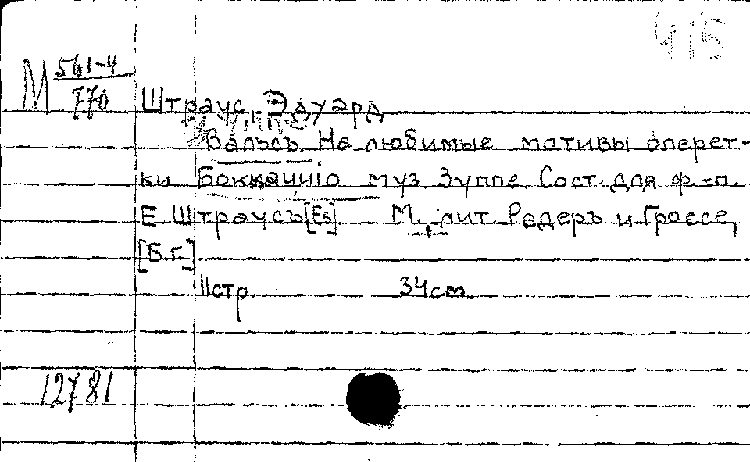 415
М 561-4/770
Штраус, Эдуард
Вальсъ. На любимые мотивы оперет-
ки Боккаччіо муз Зуппе Сост. для ф-п.
Е. Штраусъ [Es] М., лит Редеръ и Гроссе,
[Б.г.]
11стр. 34см
12781